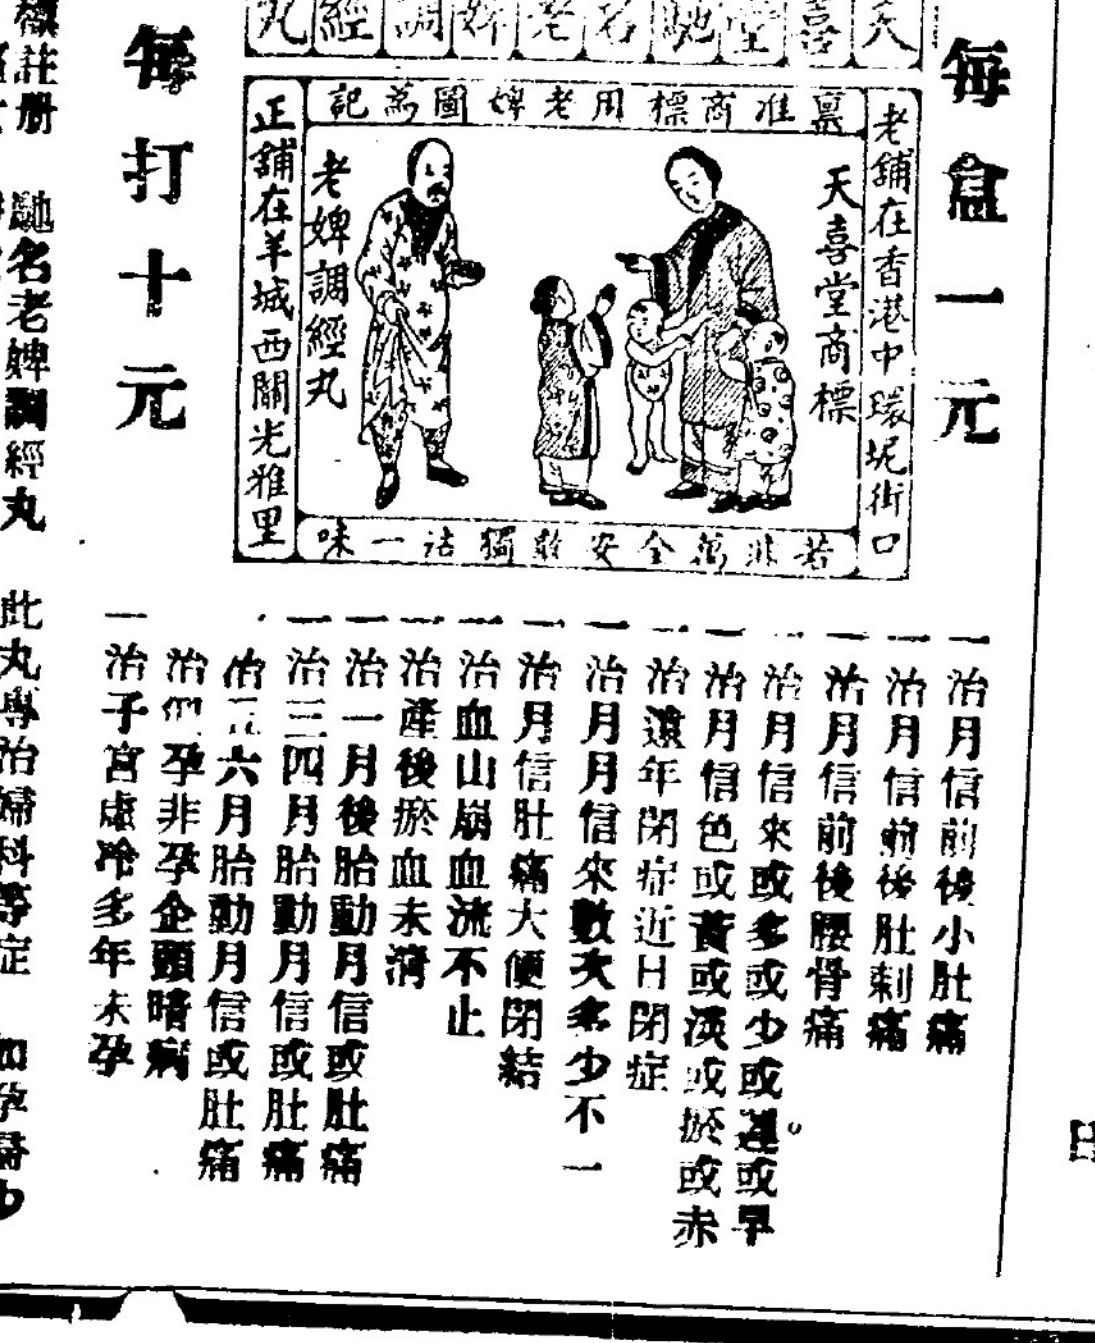 天喜堂馳名老婢調經丸
每盒一元
老舖在香港中環坭街口
稟准商標用老婢圖為記
天喜堂商標
老婢調經丸
正舖在羊城西關光雅里
若非萬全安敢獨沽一味
每打十元
一治月信前後小肚痛
一治月信前後肚刺痛
一治月信前後腰骨痛
一治月信來或多或少或遲或早
一治月信色或黃或淡或瘀或赤
一治遠年閉症近日閉症
一治月月信來數次多少不一
一治月信肚痛大便閉結
一治血山崩血流不止
一治產後瘀血未清
一治一月後胎動月信或肚痛
一治三四月胎動月信或肚痛
治五六月胎動月信或肚痛
治似孕非孕企頭暗病
一治子宮虛冷多年未孕
註册 馳名老婢調經丸 此丸專治婦科等症 如孕婦少